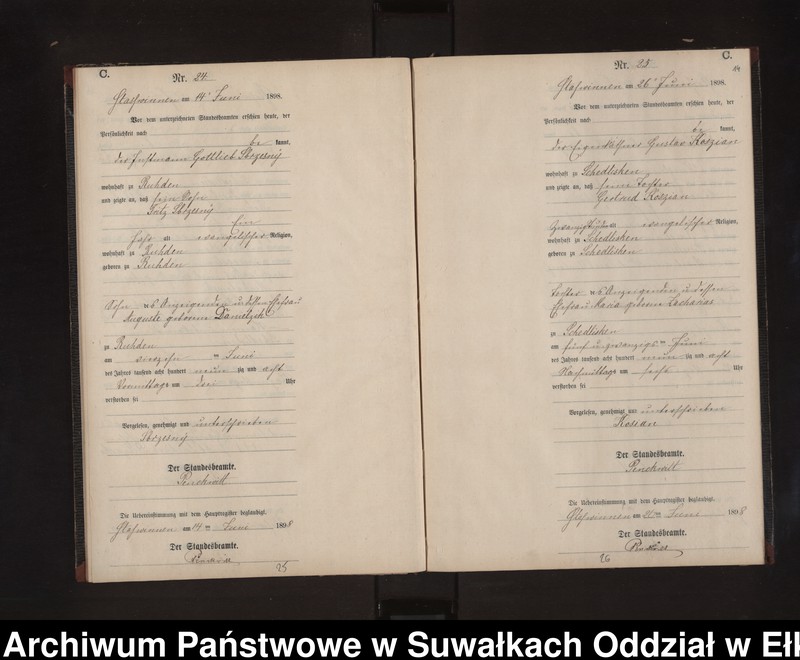 C.
Nr. 24
am 14ᵗ Juni 1898.
Vor dem unterzeichneten Standesbeamten erschien heute, der
Persönlichkeit nach
be kannt,
der Gottlieb Sbzesny
wohnhaft zu Ruhden
und zeigte an, daß sein Sohn
Fritz Sbzesny
Ein
Jahr alt evangelischer Religion,
wohnhaft zu Ruhden
geboren zu Ruhden
Sohn des Anzeigenden und dessen Ehefrau
Auguste geborene
zu Ruhden
am vierzehn ten Juni
des Jahres tausend acht hundert neun zig und acht
Vormittags um drei Uhr
verstorben sei
Vorgelesen, genehmigt und unterschrieben
Sbzesny
Der Standesbeamte.
Die Uebereinstimmung mit dem Hauptregister beglaubigt.
am 14ten Juni 1898
Der Standesbeamte.
25
C.
Nr. 25
14
am 26ᵗ Juni 1898.
Vor dem unterzeichneten Standesbeamten erschien heute, der
Persönlichkeit nach
be kannt,
der Eigenkäthner Gustav Koszian
wohnhaft zu Schedlisken
und zeigte an, daß seine Tochter
Gertrud Koszian
alt evangelischer Religion,
wohnhaft zu Schedlisken
geboren zu Schedlisken
Tochter des Anzeigenden und dessen
Ehefrau Maria geborene Zacharias
zu Schedlisken
am fünf und zwanzigs ten Juni
des Jahres tausend acht hundert neun zig und acht
Nachmittags um sechs Uhr
verstorben sei
Vorgelesen, genehmigt und unterschrieben
Kossan
Der Standesbeamte.
Die Uebereinstimmung mit dem Hauptregister beglaubigt.
am 26ten Juni 1898
Der Standesbeamte.
26
Archiwum Państwowe w Suwałkach Oddział w Ełk